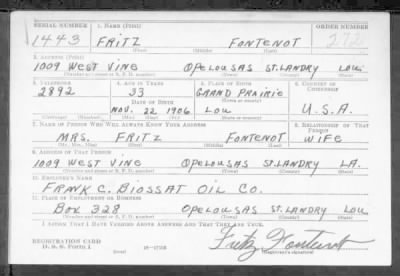 SERIAL NUMBER 1. NAME (Print) ORDER NUMBER
1443 FRITZ FONTENOT 272
(First) (Middle) (Last)
2. ADDRESS (Print)
1009 WEST VINE OPELOUSAS ST. LANDRY LOU
(Number and street or R. F. D. number) (Town) (County) (State)
3. TELEPHONE 4. AGE IN YEARS 5. PLACE OF BIRTH 6. COUNTRY OF CITIZENSHIP
2892 33 GRAND PRAIRIE
DATE OF BIRTH (Town or county)
NOV. 22 1906 LOU U.S.A.
(Mo.) (Day) (Yr.) (State or country)
7. NAME OF PERSON WHO WILL ALWAYS KNOW YOUR ADDRESS 8. RELATIONSHIP OF THAT PERSON
MRS. FRITZ FONTENOT WIFE
(Mr., Mrs., Miss) (First) (Middle) (Last)
9. ADDRESS OF THAT PERSON
1009 WEST VINE OPELOUSAS ST. LANDRY LA.
(Number and street or R. F. D. number) (Town) (County) (State)
10. EMPLOYER'S NAME
FRANK C. BIOSSAT OIL CO.
11. PLACE OF EMPLOYMENT OR BUSINESS
BOX 328 OPELOUSAS ST. LANDRY LOU
(Number and street or R. F. D. number) (Town) (County) (State)
I AFFIRM THAT I HAVE VERIFIED ABOVE ANSWERS AND THAT THEY ARE TRUE.
REGISTRATION CARD Fritz Fontenot
D. S. S. Form 1 (over) 16-17105 (Registrant's signature)